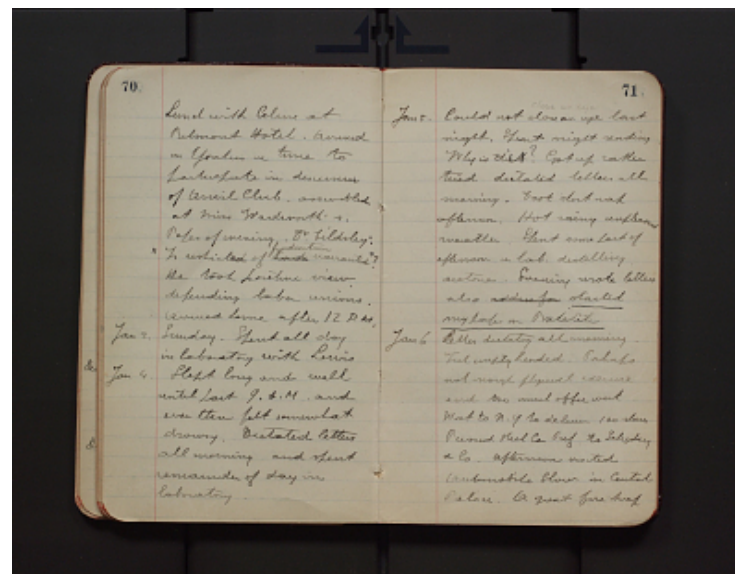 70.
Lunch with Celine at
Belmont Hotel. Arrived
in Yonkers in time to
participate in discussion
of Anvil Club. assembled
at Miss Wadsworth's.
Paper of evening, Dr
Is restricted of production
the took view
defending labor unions.
arrived home after 12 P.M.
Jan 3. Sunday. Spent all day
in laboratory with Louis
Jan 4. Slept long and well
until past 9. A.M. and
even then felt somewhat
drowsy. Dictated letters
all morning and spent
remainder of day in
laboratory.
71.
Jan 5. Could not close an eye last
night. Spent night reading
Why is this? Got up rather
tired dictated letters all
morning. Took short nap
afternoon. Hot rainy
weather. Spent some part of
afternoon in lab. distilling
Evening wrote letters
also started
my paper on Bakelite
Jan 6 Letter dictating all morning.
Feel empty headed. Perhaps
not enough physical exercise
and too much office work
Went to N.Y. to deliver
Steel Co. Pref. to
& Co. afternoon visited
Automobile Show in Central
Palace. A great fire trap